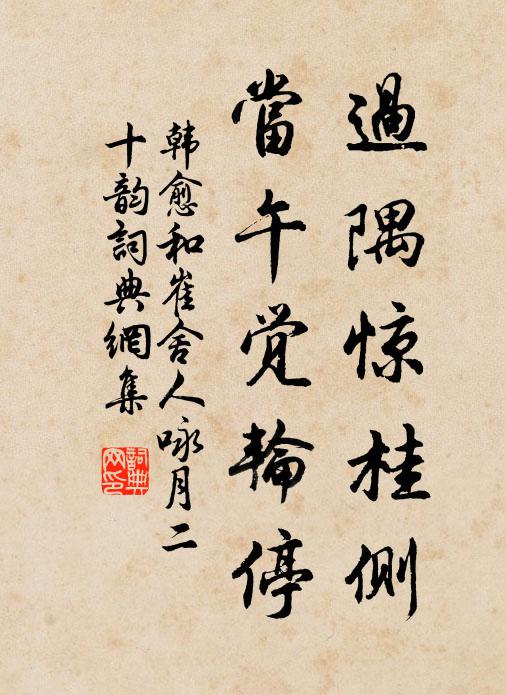 過隅惊桂側
當午觉輪停
韩愈和崔舍人咏月二
十韵詞典網集
詞典
网印